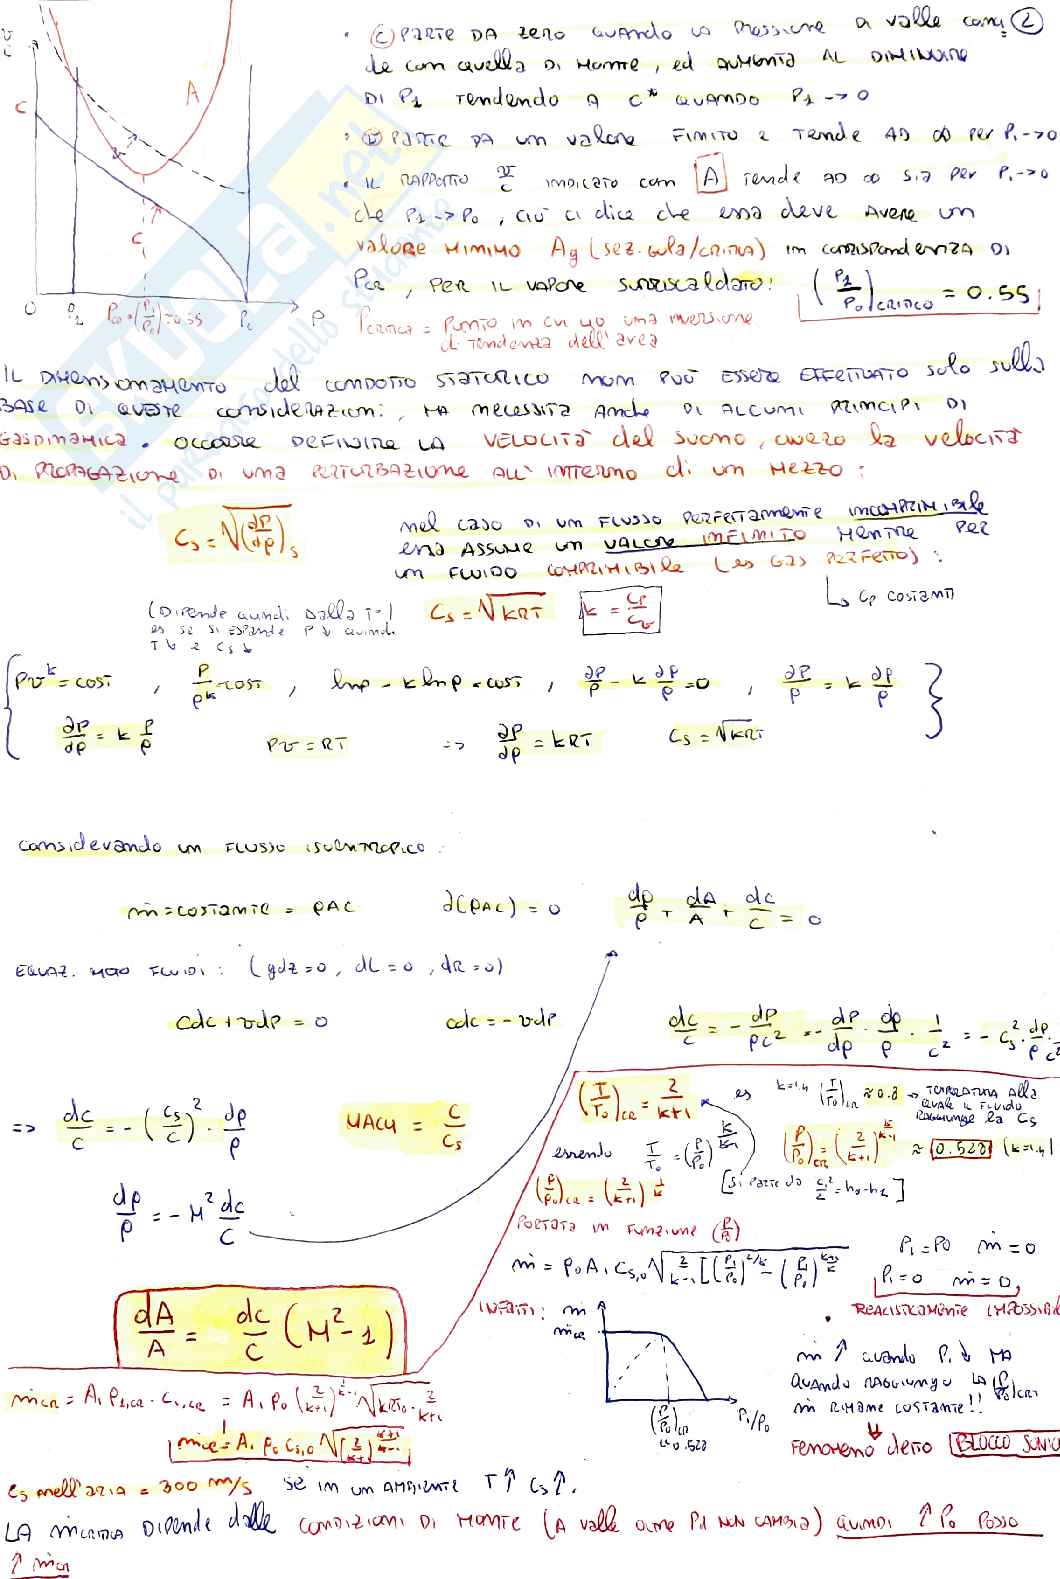 • ⓒ PARTE DA ZERO QUANDO LA PRESSIONE A VALLE COINCI- ②
DE CON QUELLA DI MONTE, ED AUMENTA AL DIMINUIRE
DI P1 TENDENDO A C* QUANDO P1 -> 0
• ⓥ PARTE DA UN VALORE FINITO E TENDE AD ∞ PER P1->0
• IL RAPPORTO v/c INDICATO CON A TENDE AD ∞ SIA PER P1->0
CHE P1->P0, CIÒ CI DICE CHE ESSA DEVE AVERE UN
VALORE MINIMO Ag (SEZ. GOLA/CRITICA) IN CORRISPONDENZA DI
PCR, PER IL VAPORE SURRISCALDATO: (P1/P0)CRITICO = 0.55
PCRITICA = PUNTO IN CUI HO UNA INVERSIONE
DI TENDENZA DELL'AREA
v c
C
A
v
C
0 P1 PCR=(P1/P0)=0.55 P0 P
SKUOLA.net
il paradiso dello studente
IL DIMENSIONAMENTO DEL CONDOTTO STATORICO NON PUÒ ESSERE EFFETTUATO SOLO SULLA
BASE DI QUESTE CONSIDERAZIONI, MA NECESSITA ANCHE DI ALCUNI PRINCIPI DI
GASDINAMICA. OCCORRE DEFINIRE LA VELOCITÀ DEL SUONO, OVVERO LA VELOCITÀ
DI PROPAGAZIONE DI UNA PERTURBAZIONE ALL'INTERNO DI UN MEZZO:
Cs = √(∂P/∂ρ)s
NEL CASO DI UN FLUSSO PERFETTAMENTE INCOMPRIMIBILE
ESSA ASSUME UN VALORE INFINITO MENTRE PER
UN FLUIDO COMPRIMIBILE (ES GAS PERFETTO):
↳ Cp COSTANTI
(DIPENDE QUINDI DALLA T°)
ES SE SI ESPANDE P↓ QUINDI
T↓ E Cs↓
Cs = √KRT K = Cp/Cv
Pv^k = COST , P/ρ^k = COST , lnp - k lnρ = COST , ∂P/P - k ∂ρ/ρ = 0 , ∂P/P = k ∂ρ/ρ
∂P/∂ρ = k P/ρ Pv = RT => ∂P/∂ρ = kRT Cs = √KRT
CONSIDERANDO UN FLUSSO ISOENTROPICO:
ṁ = COSTANTE = ρAC ∂(ρAC) = 0 dρ/ρ + dA/A + dc/c = 0
EQUAZ. MOTO FLUIDI: (gdz=0, dL=0, dR=0)
cdc + vdP = 0 cdc = -vdP dc/c = - dP/ρc² = - dP/dρ · dρ/ρ · 1/c² = - Cs² · dρ/ρ · 1/c²
=> dc/c = -(Cs/c)² · dρ/ρ MACH = C/Cs
dρ/ρ = -M² dc/c
dA/A = dc/c (M²-1)
(T/T0)CR = 2/(k+1) ES K=1.4 (T/T0)CR ≈ 0.8 -> TEMPERATURA ALLA
QUALE IL FLUIDO
RAGGIUNGE LA Cs
ESSENDO T/T0 = (P/P0)^(k/k-1) (P/P0)CR = (2/k+1)^(k/k-1) ≈ 0.528 (K=1.4)
(ρ/ρ0)CR = (2/k+1)^(1/k) [SI PARTE DA c1²/2 = h0-h1]
PORTATA IN FUNZIONE (P/P0)
ṁ = ρ0 A1 Cs,0 √(2/(k-1) [(P1/P0)^(2/k) - (P1/P0)^(k+1/k)]
P1=P0 ṁ=0
P1=0 ṁ=0,
REALISTICAMENTE IMPOSSIBI
INFATTI: ṁ
ṁCR
(P/P0)CR
≈0.528
P1/P0
ṁ ↑ QUANDO P1↓ MA
QUANDO RAGGIUNGO LA (P/P0)CRT
ṁ RIMANE COSTANTE!!
FENOMENO DETTO BLOCCO SONIC
ṁCR = A1 ρ1,CR · C1,CR = A1 ρ0 (2/k+1)^(1/k-1) √(KRT0 · 2/k+1)
ṁCR = A1 ρ0 Cs,0 √([2/k+1]^(k+1/k-1))
Cs NELL'ARIA = 300 m/s SE IN UN AMBIENTE T↑ Cs↑.
LA ṁCRITICA DIPENDE DALLE CONDIZIONI DI MONTE (A VALLE OLTRE P1 NON CAMBIA) QUINDI ↑ P0 POSSO
↑ ṁCR